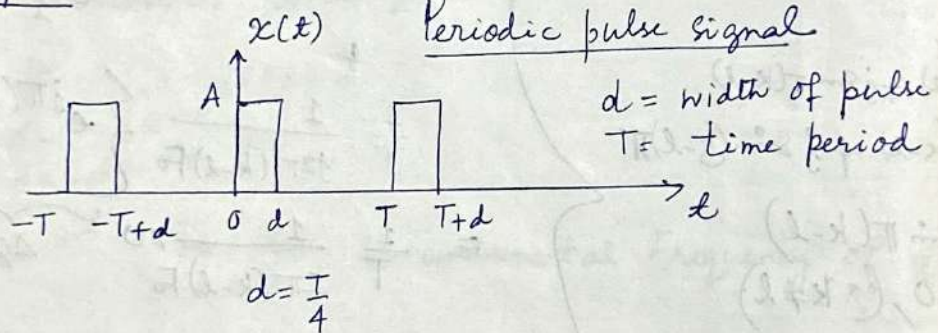 x(t)
Periodic pulse signal
A
d = width of pulse
T = time period
-T -T+d 0 d T T+d t
d = T/4